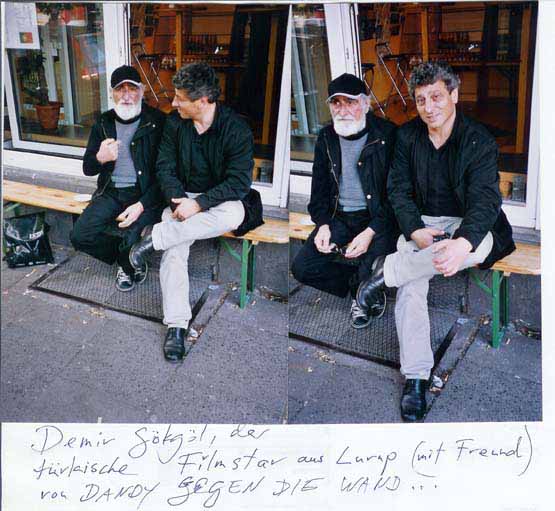 Demir Gökgöl, der
türkische Filmstar aus Lurup (mit Freund)
von DANDY GEGEN DIE WAND...